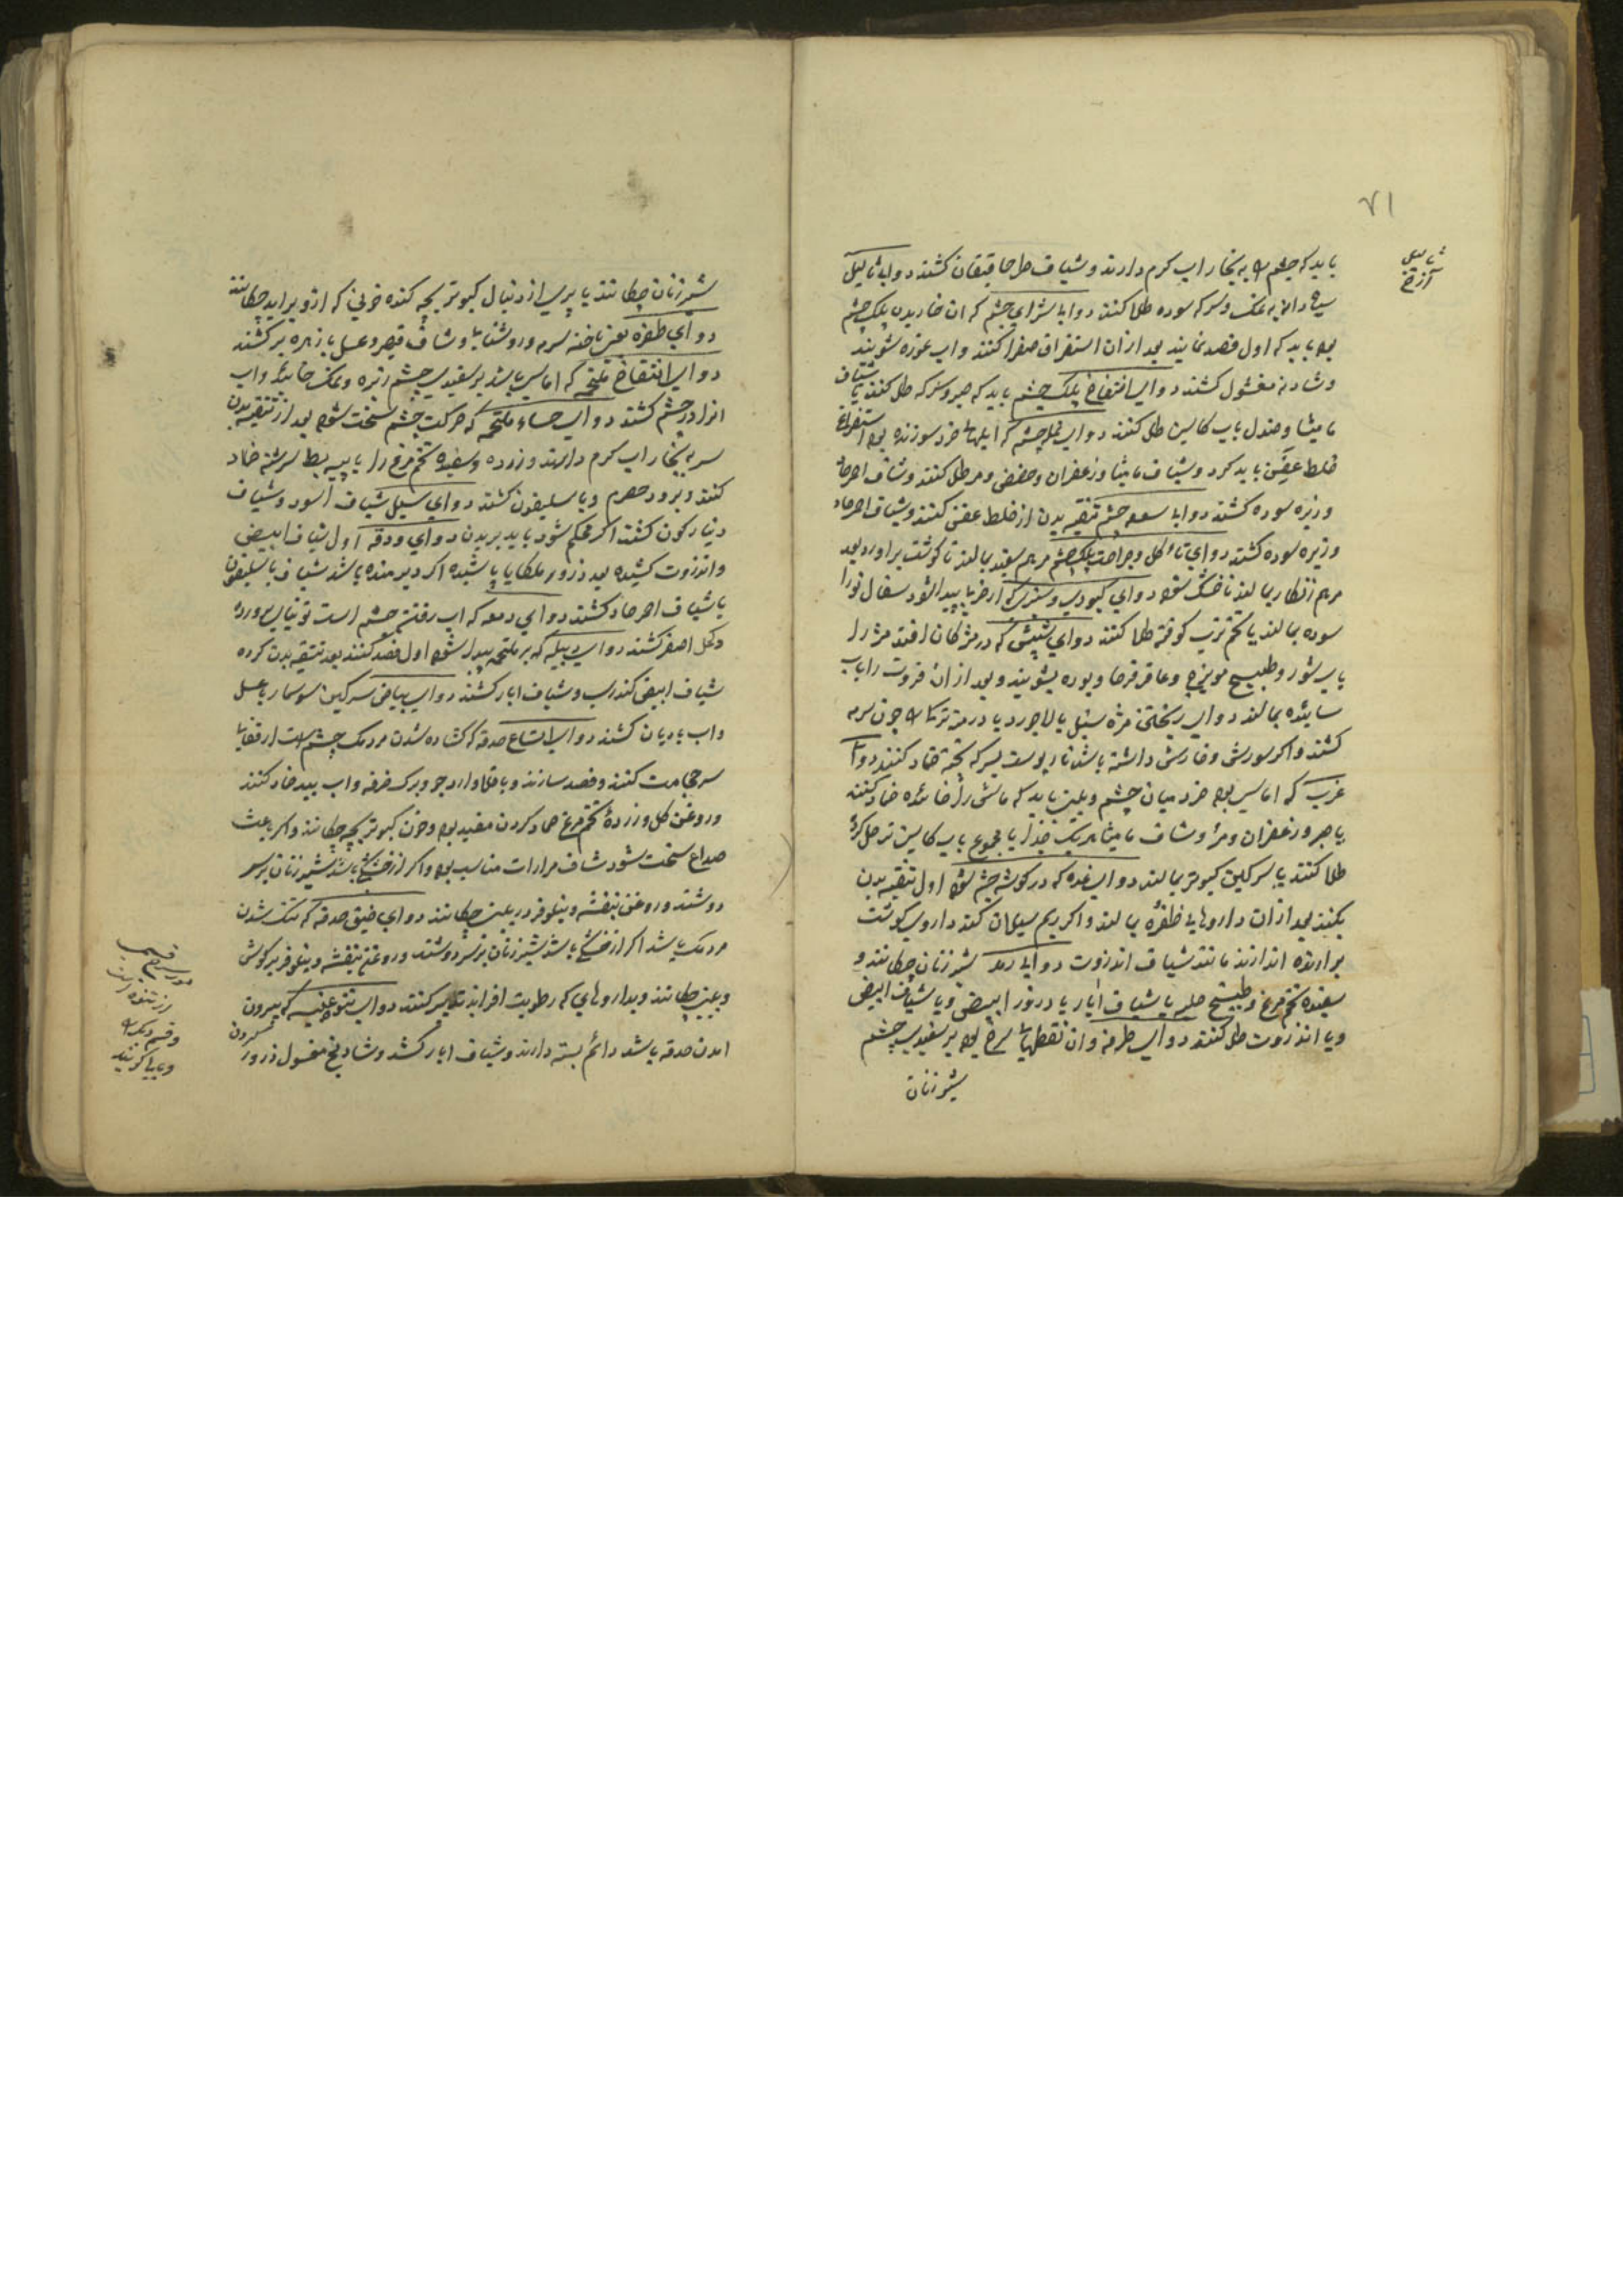 ۷۱
ثالیل
آزخ
باید که چشم را به بخار اب کرم دارند و شیاف کشند دوای ثالیل
سیاه دانه به نمک و سرکه سوده طلا کنند دوای شرای چشم که ان خاریدن پلک چشم
بود باید که اول فصد نمایند بعد از ان استفراق صفرا کنند و اب غوره شویند
و شادنه مغسول کشند دوای انتفاخ پلک چشم باید که صبر و سرکه طلی کنند یا شیاف
مامیثا و صندل باب کاسنی طلی کنند دوای نمله چشم که ابلهاء خرد سوزنده بود استفراغ
خلط عفن باید کرد و شیاف مامیثا و زعفران و حضض و مر طلی کنند و شیاف احمر حاد
و زیره سوده کشند دوای سعفه چشم تنقیه بدن از خلط عفن کنند و شیاف احمر حاد
و زیره سوده کشند دوای تاکل و جراحت پلک چشم مرهم سفید بمالند تا کوشت براورد بعد
مرهم زنکار بمالند تا خشک شود دوای کبودی و سبزی که از ضربا پیدا شود سفال نورا
سوده بمالند یا تخم ترب کوفته طلا کنند دوای شپش که در مژکان افتد مژه را
باب شور و طبیخ مویزج و عاقرقرحا و بوره بشویند و بعد از ان را باب
سائیده بمالند دوای ریختن مژه سنبل یا لاجورد یا درمنه ترکی را چون سرمه
کشند و اکر سوزش و خارش داشته باشد نار پوست بسرکه پخته ضماد کنند دوای
غرب که اماسی بود خرد میان چشم و بینی باید که ماش را خائیده ضماد کنند
یا صبر و زعفران و مر و شیاف مامیثا هریک جدا یا مجموع باب کاسنی تر حل کرده
طلا کنند یا سرکین کبوتر بمالند دوای غده که در کوشه چشم شود اول تنقیه بدن
بکنند بعد از ان داروهای ظفره بمالند و اکر ریم سیلان کند داروی کوشت
براورنده اندازند مانند شیاف انذروت دوای رمد شیر زنان چکانند و
سفیده تخم مرغ و طبیخ حلبه یا شیاف ابار یا درور ابیض و یا شیاف ابیض
و یا انذروت طلی کنند دوای طرفه و ان نقطهای سرخ بود بر سفیدی چشم
شیر زنان
شیر زنان چکانند یا پری از دنبال کبوتر بچه کنده خونی که ازو براید چکانند
دوای ظفره یعنی ناخنه سرمه و روشنایا و شیاف قیصر و عسل با زهره بز کشند
دوای انتفاخ ملتحمه که اماسی باشد بر سفیدی چشم زیره و نمک خائیده و اب
انرا در چشم کشند دوای جساء ملتحمه که حرکت چشم سخت شود بعد از تنقیه بدن
سر به بخار اب کرم دارند و زرده و سفیده تخم مرغ را با پیه بط سرشته ضماد
کنند و برود حصرم و باسلیقون کشند دوای سبل شیاف اسود و شیاف
دینارکون کشند اکر محکم شود باید بریدن دوای ودقه اول شیاف ابیض
و انذروت کشیده بعد ذرور ملکایا پاشیده اکر دیر مانده باشد شیاف باسلیقون
یا شیاف احمر حاد کشند دوای دمعه که اب رفتن چشم است توتیای پرورده
و کحل اصفر کشند دوای دبیله که بر ملتحمه پیدا شود اول فصد کنند بعد تنقیه بدن کرده
شیاف ابیض کندری و شیاف ابار کشند دوای بیاض سرکین سوسمار با عسل
و اب بادیان کشند دوای اتساع حدقه که کشاده شدن مردمک چشم است از قفا یا
سر حجامت کنند و فصد سازند و باقلا و ارد جو و برک خرفه و اب بید ضماد کنند
و روغن کل و زرده تخم مرغ ضماد کردن مفید بود و خون کبوتر بچه چکانند و اکر باعث
صداع سخت شود شیاف مرارات مناسب بود و اکر از خشکی باشد شیر زنان بر سر
دوشند و روغن بنفشه و نیلوفر در بینی چکانند دوای ضیق حدقه که تنک شدن
مردمک باشد اکر از خشکی باشد شیر زنان بر سر دوشند و روغن بنفشه و نیلوفر بر کوش
و بینی چکانند و بداروهای که رطوبت افزاید تدبیر کنند دوای نتوء عنبیه که بیرون
امدن حدقه باشد دائم بسته دارند و شیاف ابار کشند و شادنج مغسول ذرور